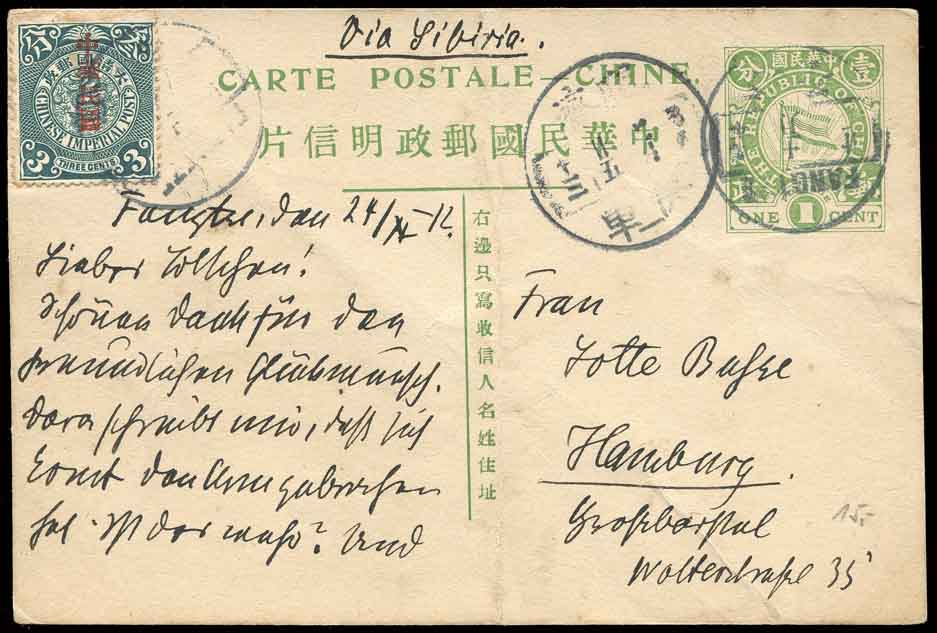 Via Sibiria.
CARTE POSTALE–CHINE.
片信明政郵國民華中
CHINESE IMPERIAL POST
3 THREE CENTS 3
分 中華民國 壹
THE REPUBLIC OF CHINA
ONE 1 CENT
右邊只寫收信人名姓住址
Fangtze, den 24/ 12.
Lieber Lottchen!
Schönen Dank für den
freundlichen Glückwunsch.
Dora schreibt mir, daß sich
Ernst den Arm gebrochen
hat. Ist das wahr? Und
Frau
Lotte Busse
Hamburg.
Großborstel
Wolterstraße 35
15.-